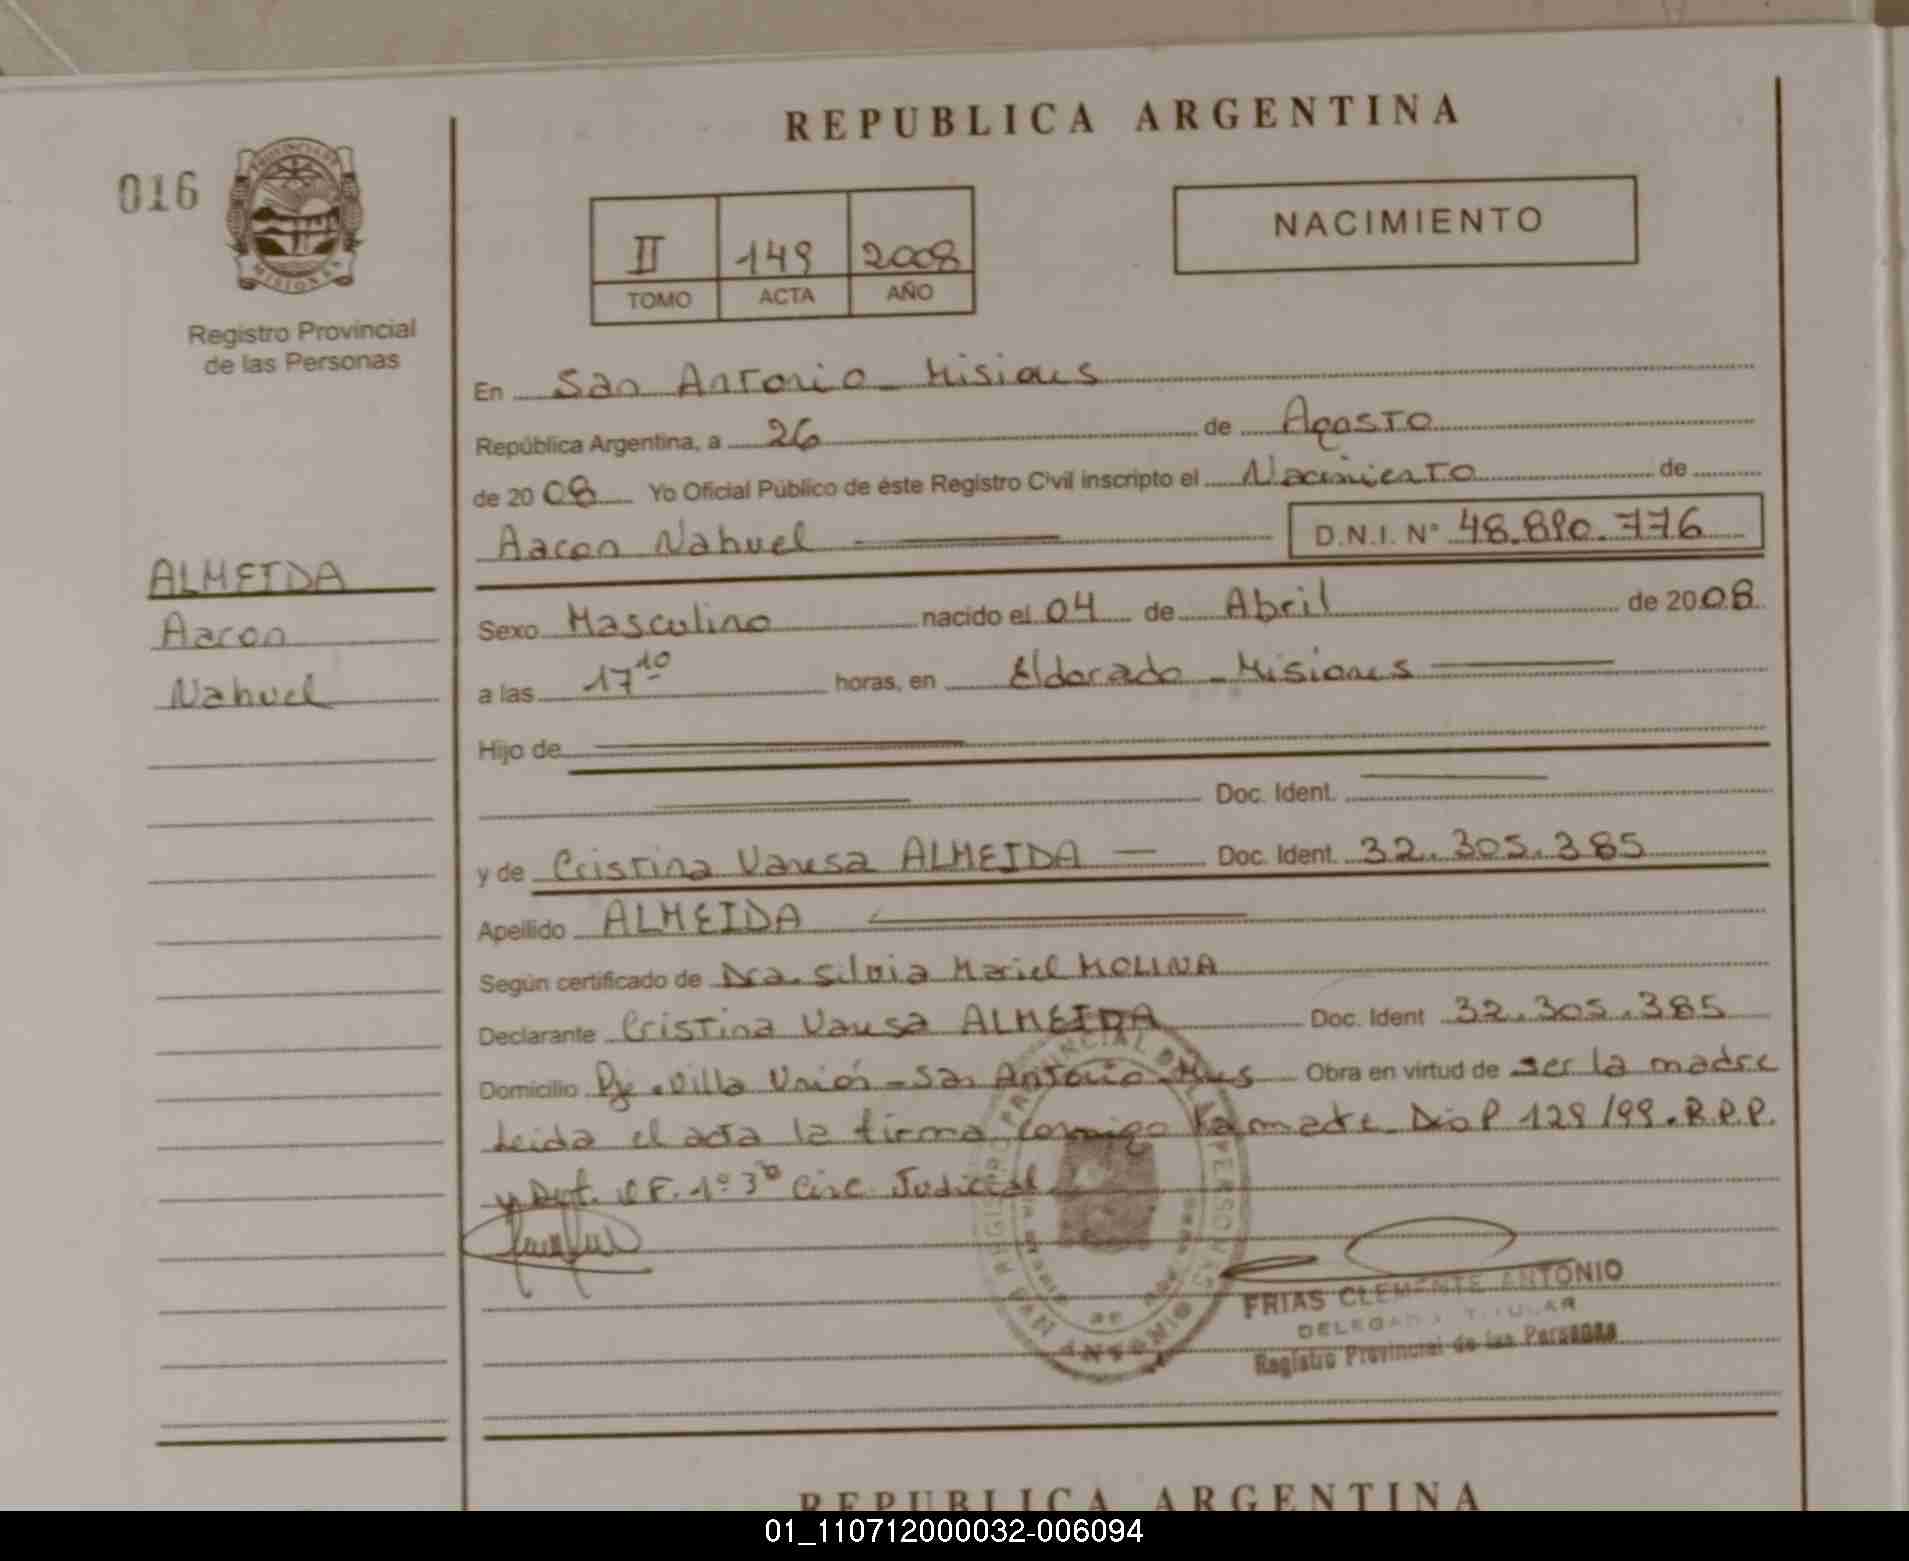 REPUBLICA ARGENTINA
016
PROVINCIA DE
MISIONES
Registro Provincial
de las Personas
II 149 2008
TOMO ACTA AÑO
NACIMIENTO
En San Antonio - Misiones
República Argentina, a 26 de Agosto
de 20 08 Yo Oficial Público de éste Registro Civil inscripto el Nacimiento de
Aaron Nahuel D.N.I. N° 48.890.776
ALMEIDA
Aaron
Nahuel
Sexo Masculino nacido el 04 de Abril de 2008
a las 17 10 horas, en Eldorado - Misiones
Hijo de
Doc. Ident.
y de Cristina Vanesa ALMEIDA Doc. Ident. 32.305.385
Apellido ALMEIDA
Según certificado de Dra. Silvia Mariel MOLINA
Declarante Cristina Vanesa ALMEIDA Doc. Ident 32.305.385
Domicilio Pje. Villa Unión - San Antonio - Mnes Obra en virtud de ser la madre
Leida el acta la firma conmigo la madre 129/99. R.P.P.
y C.F. 1° 3° Circ. Judicial
FRIAS CLEMENTE ANTONIO
DELEGADO TITULAR
Registro Provincial de las Personas
REPUBLICA ARGENTINA
01_110712000032-006094